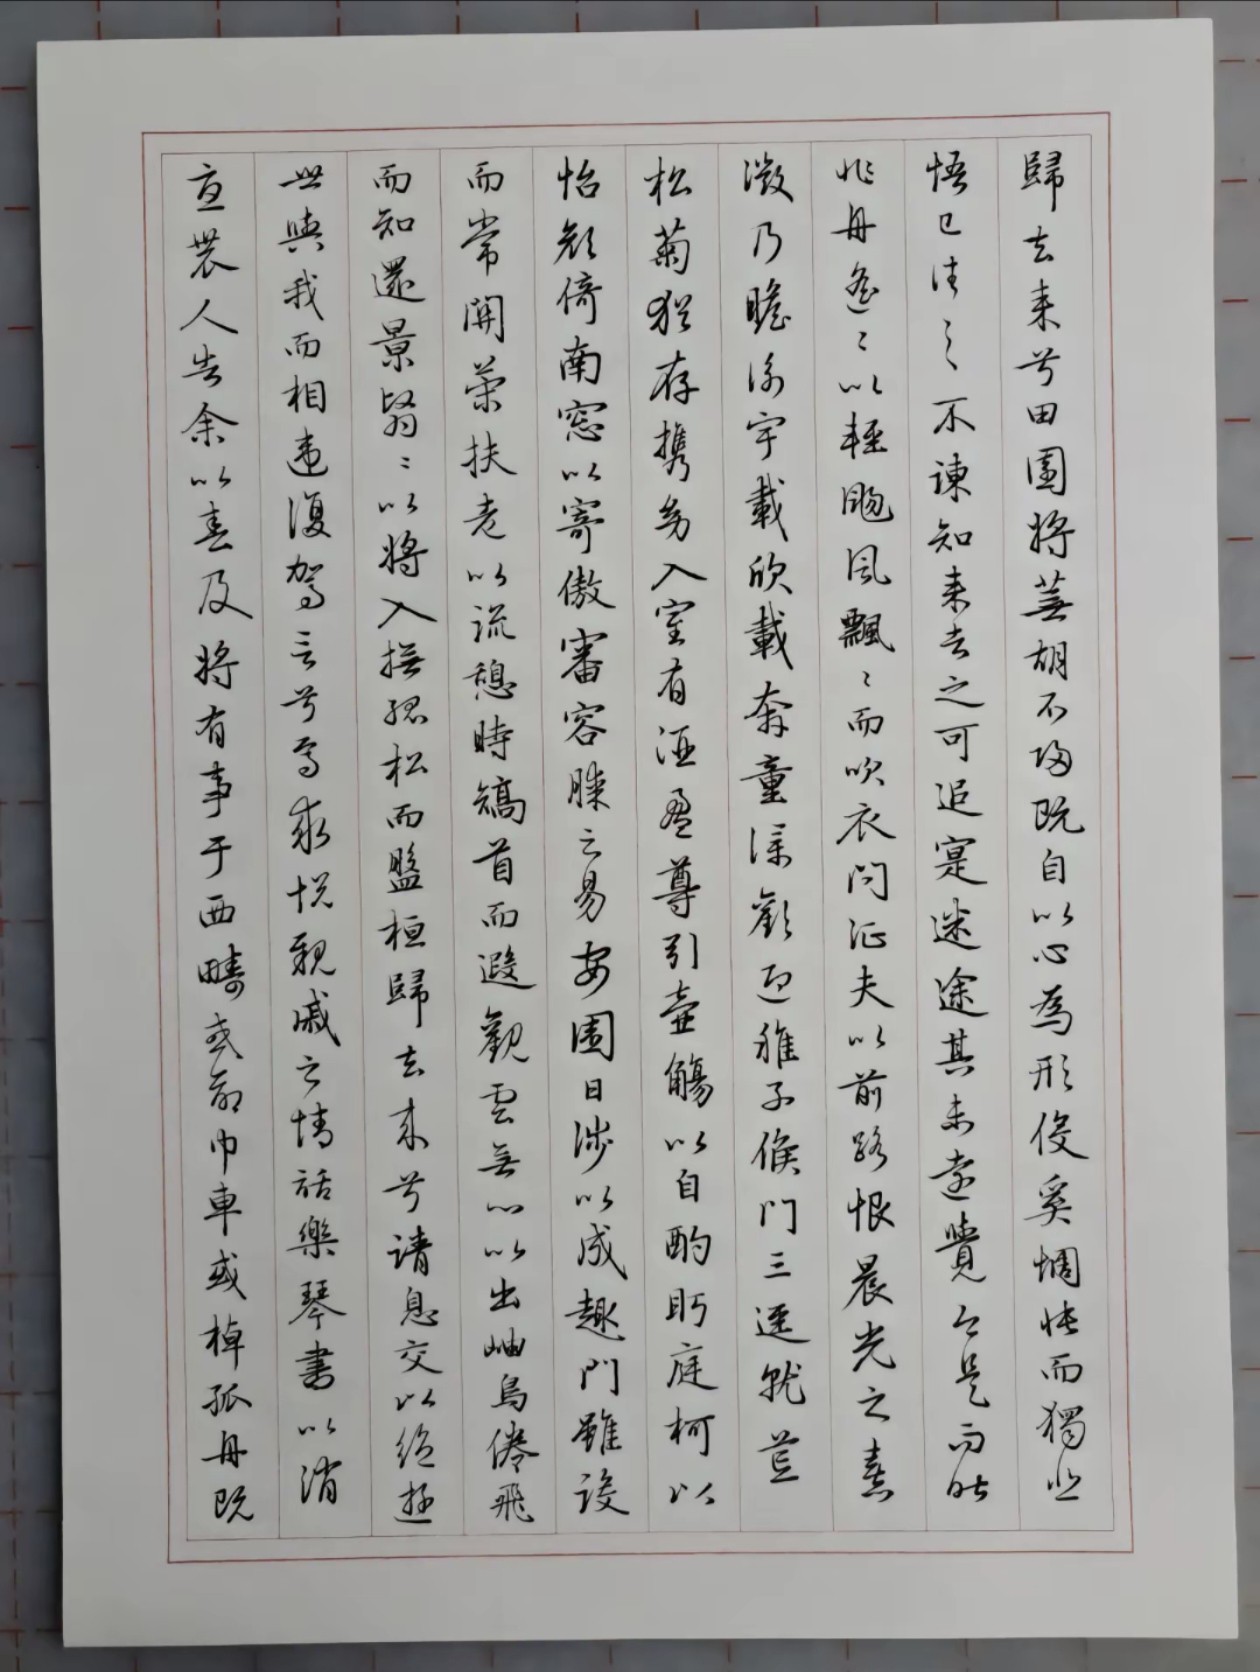 歸去来兮田園將蕪胡不歸既自以心為形役奚惆悵而獨悲
悟已往之不諫知来者之可追寔迷途其未遠覺今是而昨
非舟遙〻以輕颺風飄〻而吹衣問征夫以前路恨晨光之熹
微乃瞻衡宇載欣載奔童僕歡迎稚子候門三逕就荒
松菊猶存携幼入室有酒盈尊引壺觴以自酌眄庭柯以
怡顏倚南窓以寄傲審容膝之易安園日涉以成趣門雖設
而常開策扶老以流憩時矯首而遐觀雲無心以出岫鳥倦飛
而知還景翳〻以將入撫孤松而盤桓歸去来兮請息交以絕遊
世與我而相違復駕言兮焉求悅親戚之情話樂琴書以消
憂農人告余以春及將有事于西疇或命巾車或棹孤舟既